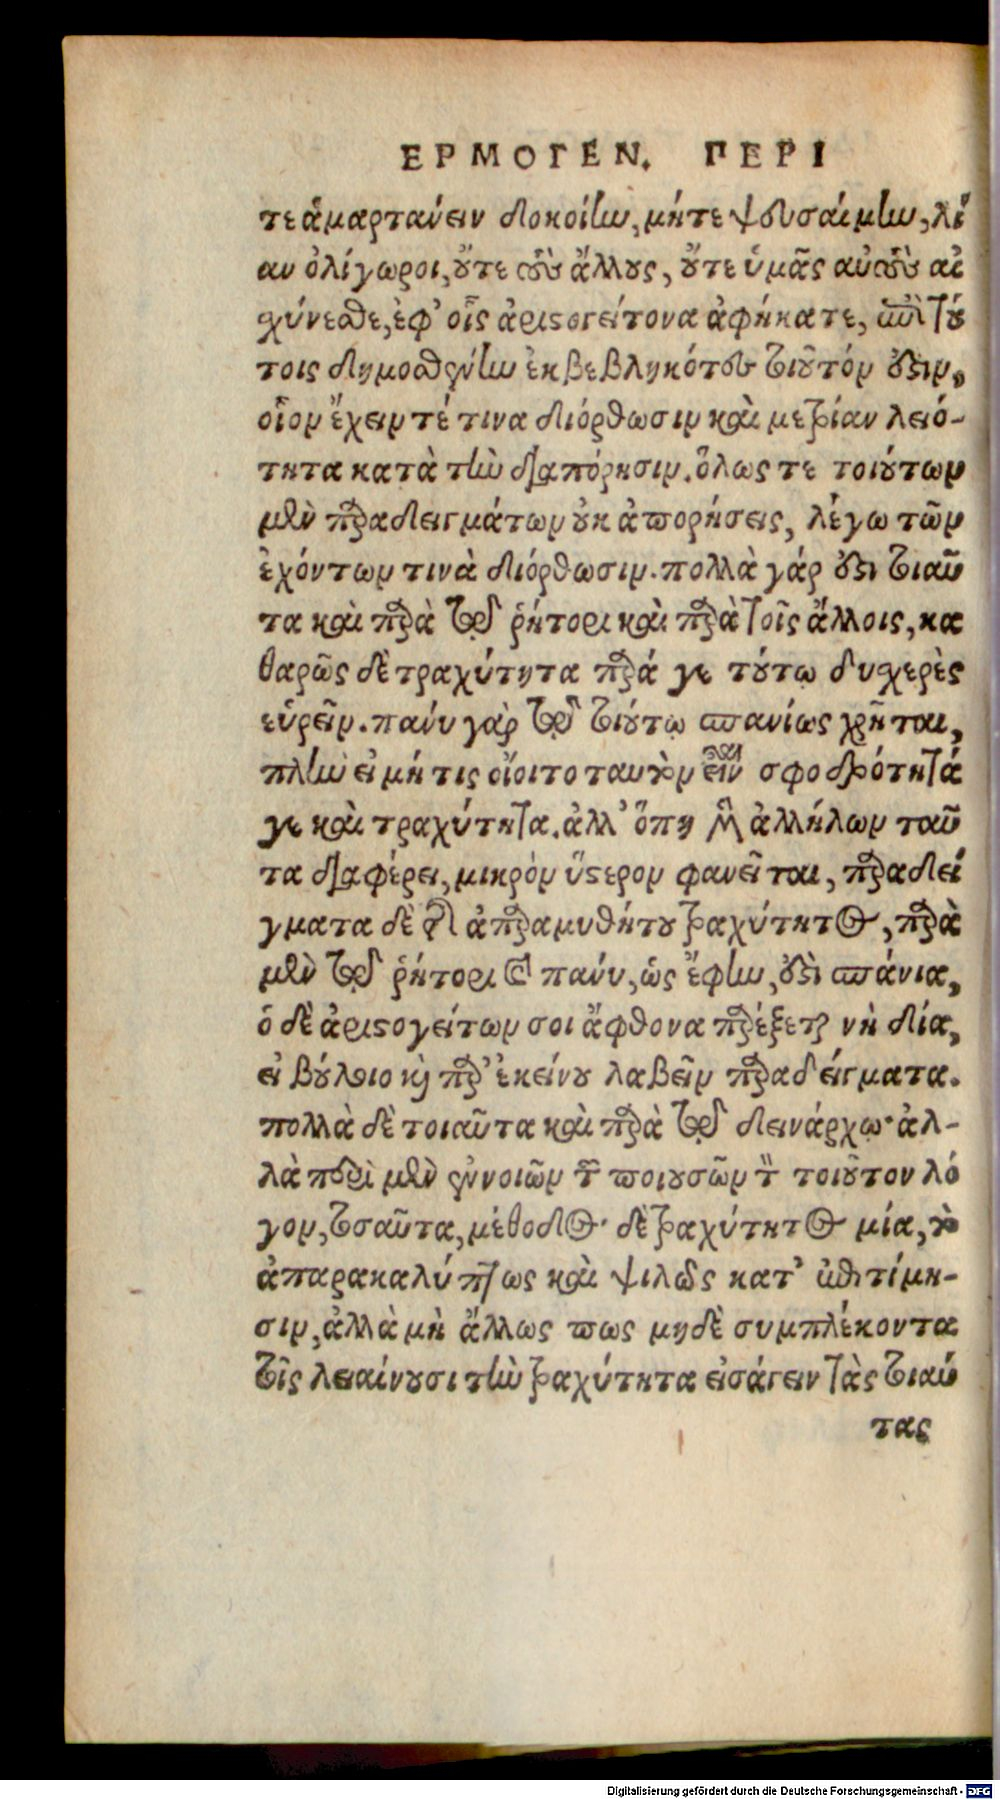 ΕΡΜΟΓΕΝ. ΠΕΡΙ
τε ἁμαρτάνειν δοκοίην, μήτε ψευσαίμην, λί
αν ὀλίγωροι, οὔτε τοὺς ἄλλους, οὔτε ὑμᾶς αὐτοὺς αἰ
σχύνεσθε, ἐφ' οἷς ἀριστογείτονα ἀφήκατε, ἐπὶ τού
τοις δημοσθένην ἐκβεβληκότες τοιοῦτόν ἐστιν,
οἷον ἔχειν τέ τινα διόρθωσιν καὶ μετρίαν λειό-
τητα κατὰ τὴν διαπόρησιν. ὅλως τε τοιούτων
μὲν παραδειγμάτων οὐκ ἀπορήσεις, λέγω τῶν
ἐχόντων τινὰ διόρθωσιν. πολλὰ γάρ ἐστι τοιαῦ
τα καὶ παρὰ τῷ ῥήτορι καὶ παρὰ τοῖς ἄλλοις, κα
θαρῶς δὲ τραχύτητα παρά γε τούτῳ δυσχερὲς
εὑρεῖν. πάνυ γὰρ τῷ τοιούτῳ σπανίως χρῆται,
πλὴν εἰ μή τις οἴοιτο ταυτὸν εἶναι σφοδρότητά
γε καὶ τραχύτητα. ἀλλ' ὅπη μὲν ἀλλήλων ταῦ
τα διαφέρει, μικρὸν ὕστερον φανεῖται, παραδεί
γματα δὲ τῆς ἀπαραμυθήτου τραχύτητος, παρὰ
μὲν τῷ ῥήτορι καὶ πάνυ, ὡς ἔφην, ἐστὶ σπάνια,
ὁ δὲ ἀριστογείτων σοι ἄφθονα παρέξεται νὴ δία,
εἰ βούλοιο καὶ παρ' ἐκείνου λαβεῖν παραδείγματα.
πολλὰ δὲ τοιαῦτα καὶ παρὰ τῷ δεινάρχῳ· ἀλ-
λὰ περὶ μὲν ἐννοιῶν τῶν ποιουσῶν τὸν τοιοῦτον λό
γον, τοσαῦτα, μέθοδος· δὲ τραχύτητος μία, τὸ
ἀπαρακαλύπτως καὶ ψιλῶς κατ' ἐπιτίμη-
σιν, ἀλλὰ μὴ ἄλλως πως μηδὲ συμπλέκοντα
τοῖς λεαίνουσι τὴν τραχύτητα εἰσάγειν τὰς τοιαύ
τας
Digitalisierung gefördert durch die Deutsche Forschungsgemeinschaft - DFG